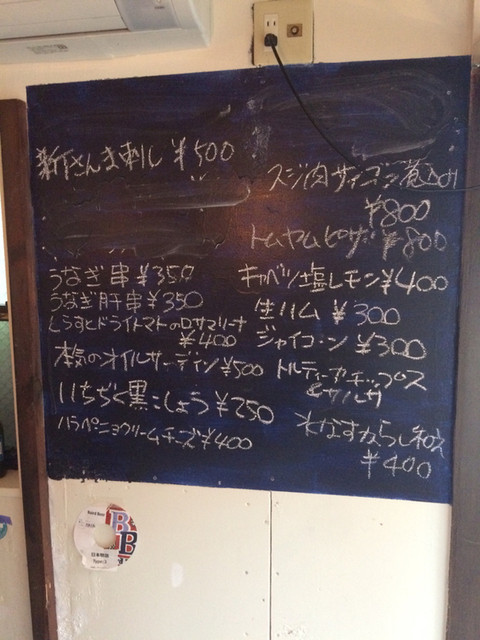 新さんま刺し ¥500
うなぎ串 ¥350
うなぎ肝串 ¥350
しらすとドライトマトのロサマリーナ
¥400
本気のオイルサーディン ¥500
いちぢく黒こしょう ¥250
ハラペーニョクリームチーズ ¥400
スジ肉サイゴン煮込み
¥800
トムヤムピザ ¥800
キャベツ塩レモン ¥400
生ハム ¥300
ジャイコーン ¥300
トルティーヤチップス
&サルサ
水なすからし和え
¥400
Baird Beer
日本物語